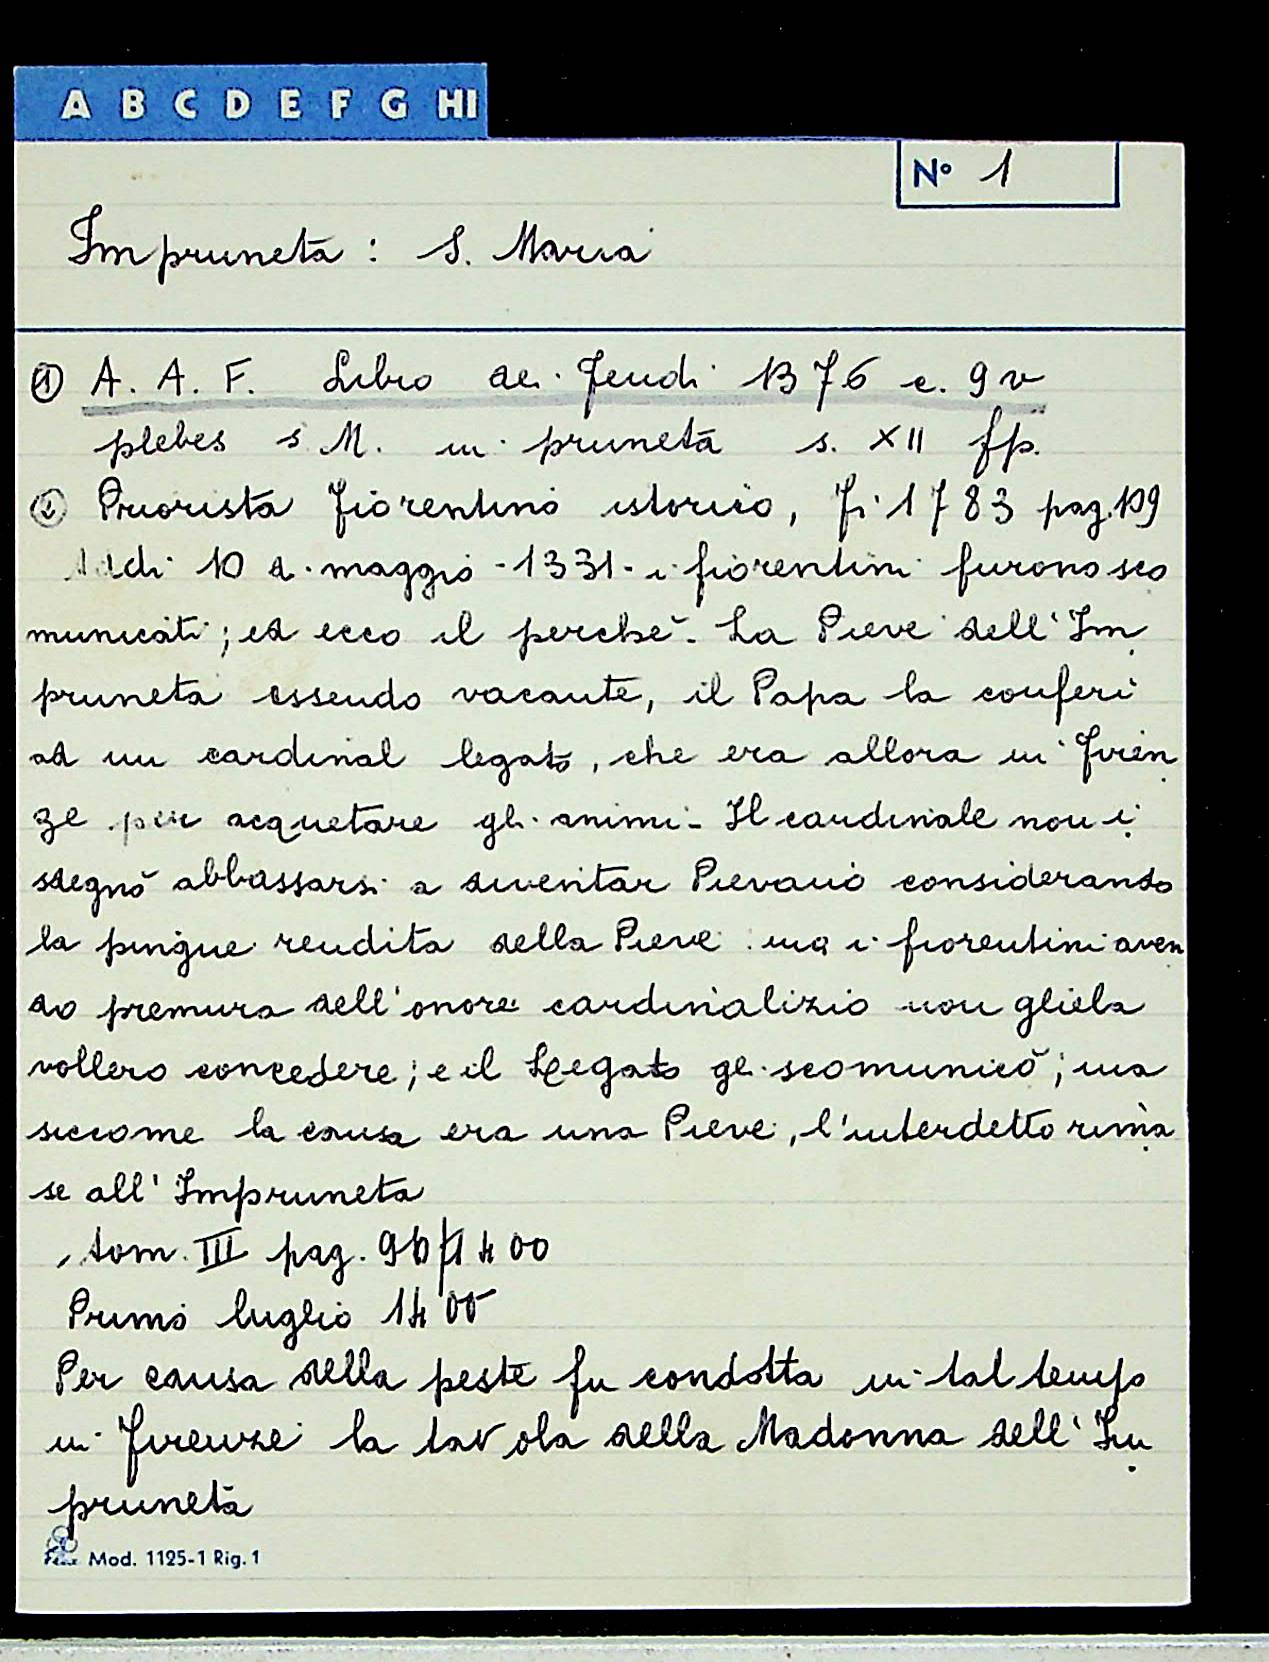 A B C D E F G HI
N° 1
Impruneta: S. Maria
① A. A. F. Libro dei feudi 1376 c. 9 v
plebes s M. in pruneta s. XII fp.
② Priorista fiorentino istorico, Fi 1783 pag. 109
Addi 10 di maggio - 1331 - i fiorentini furono sco
municati; ed ecco il perchè - La Pieve dell'Im
pruneta essendo vacante, il Papa la conferì
ad un cardinal legato, che era allora in Firen
ze per acquetare gli animi - Il cardinale non i
sdegnò abbassarsi a diventar Pievano considerando
la pingue rendita della Pieve: ma i fiorentini aven
do premura dell'onore cardinalizio non gliela
vollero concedere; e il Legato gli scomunicò; ma
siccome la causa era una Pieve, l'interdetto rima
se all'Impruneta
tom. III pag. 96 1400
Primo luglio 1400
Per causa della peste fu condotta in tal tempo
in Firenze la tavola della Madonna dell'Im
pruneta
Mod. 1125-1 Rig. 1